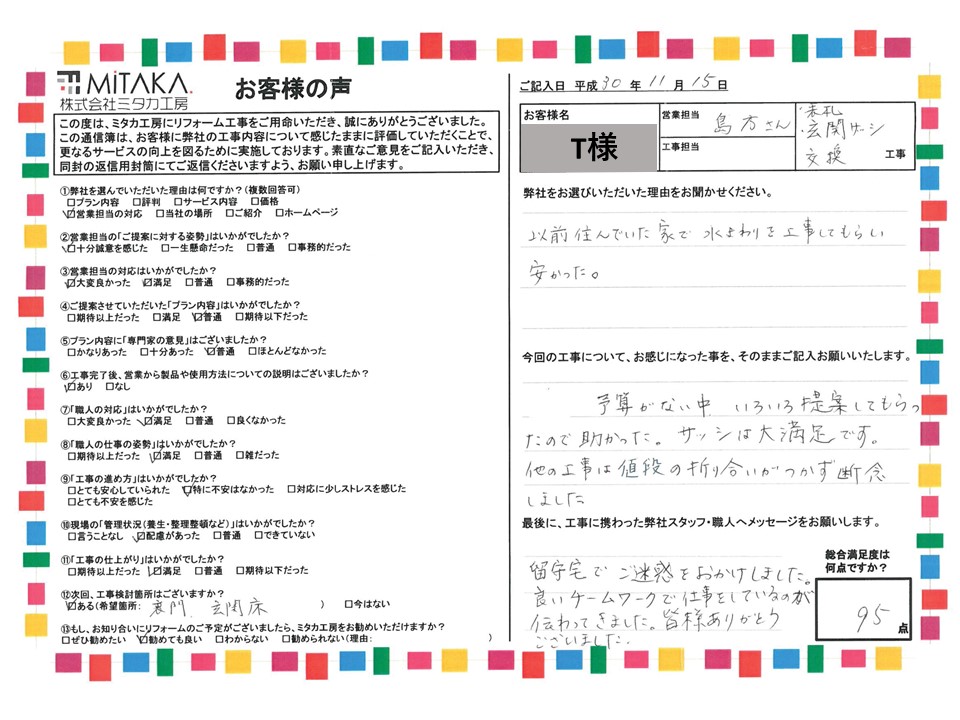 MiTAKA.
株式会社ミタカ工房
お客様の声
この度は、ミタカ工房にリフォーム工事をご用命いただき、誠にありがとうございました。
この通信簿は、お客様に弊社の工事内容について感じたままに評価していただくことで、
更なるサービスの向上を図るために実施しております。素直なご意見をご記入いただき、
同封の返信用封筒にてご返信くださいますよう、お願い申し上げます。
①弊社を選んでいただいた理由は何ですか?(複数回答可)
□プラン内容 □評判 □サービス内容 □価格
☑営業担当の対応 □当社の場所 □ご紹介 □ホームページ
②営業担当の「ご提案に対する姿勢」はいかがでしたか?
☑十分誠意を感じた □一生懸命だった □普通 □事務的だった
③営業担当の対応はいかがでしたか?
☑大変良かった ☑満足 □普通 □事務的だった
④ご提案させていただいた「プラン内容」はいかがでしたか?
□期待以上だった □満足 ☑普通 □期待以下だった
⑤プラン内容に「専門家の意見」はございましたか?
□かなりあった □十分あった ☑普通 □ほとんどなかった
⑥工事完了後、営業から製品や使用方法についての説明はございましたか?
☑あり □なし
⑦「職人の対応」はいかがでしたか?
□大変良かった ☑満足 □普通 □良くなかった
⑧「職人の仕事の姿勢」はいかがでしたか?
□期待以上だった ☑満足 □普通 □雑だった
⑨「工事の進め方」はいかがでしたか?
□とても安心していられた ☑特に不安はなかった □対応に少しストレスを感じた
□とても不安を感じた
⑩現場の「管理状況(養生・整理整頓など)」はいかがでしたか?
□言うことなし ☑配慮があった □普通 □できていない
⑪「工事の仕上がり」はいかがでしたか?
□期待以上だった ☑満足 □普通 □期待以下だった
⑫次回、工事検討箇所はございますか?
☑ある(希望箇所: 裏門 玄関床 ) □今はない
⑬もし、お知り合いにリフォームのご予定がございましたら、ミタカ工房をお勧めいただけますか?
□ぜひ勧めたい ☑勧めても良い □わからない □勧められない(理由: )
ご記入日 平成 30 年 11 月 15 日
お客様名
T様
営業担当 島方さん
工事担当
・表札
・玄関サッシ
交換 工事
弊社をお選びいただいた理由をお聞かせください。
以前住んでいた家で水まわりを工事してもらい
安かった。
今回の工事について、お感じになった事を、そのままご記入お願いいたします。
予算がない中 いろいろ提案してもらっ
たので助かった。サッシは大満足です。
他の工事は値段の折り合いがつかず断念
しました
最後に、工事に携わった弊社スタッフ・職人へメッセージをお願いします。
留守宅でご迷惑をおかけしました。
良いチームワークで仕事をしているのが
伝わってきました。皆様ありがとう
ございました。
総合満足度は
何点ですか?
95 点